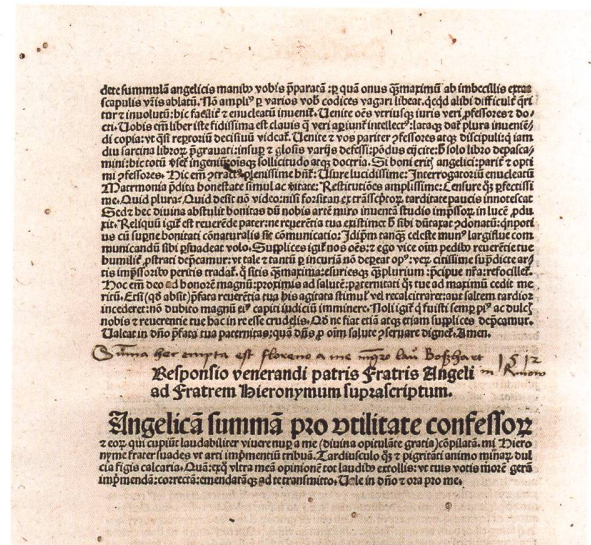 dete summulā angelicis manibꝰ vobis p̄paratā: ꝑ quā onus qꝫmaximū ab imbecillis
scapulis vr̄is ablatū. Nā ampliꝰ ꝑ varios vob̄ codices vagari libeat. qcqd alibi difficulť q̄ri
tur ⁊ inuolutū: hic facilīť ⁊ enucleatū inuenīt. Uenite oēs vtriusqꝫ iuris veri ꝓfessores ⁊ do
cti. Uobis em̄ liber iste fidissima est clauis q̄ veri apiunt intellectꝰ: lataqꝫ dat̄ plura inuenien̄
di copia: vt qsi reptoriū decisiuū videat̄. Uenite ⁊ vos pariter ꝓfessores atqꝫ discipuli: q iam
diu sarcina libroꝝ p̄grauati: insuꝑ ⁊ glosis varijs defessi: pōdus eijcite: hꝰ solo libro depasca
mini: hic totū vr̄eꝫ ingeniū oisqꝫ sollicitudo atqꝫ doctria. Si boni eritꝭ angelici: parit̄ ⁊ opti
mi ꝓfessores. Hic em̄ plenissime bn̄t: Usure lucidissime: Interrogatoriū enucleatū
Matrimonia p̄dita honestate simul ac vtitate: Restitutōes amplissime: Censure qꝫ ꝑfectissi
me. Quid plura: Quid desit nō video: nisi forsitan ex trāsscptoꝝ tarditate paucis innotescat
Sed ⁊ hec diuina abstulit bonitas dū nobis artē miro inuentā studio impssoꝝ in lucē ꝓdu
xit. Reliquū igiť est reuerēde pater: ne reuerētia tua existimet sibi dūtaxat ꝓdonatū: qn̄potius
cū sume bonitati conaturalis sit comunicatio: Idip̄m tanqꝫ celeste munꝰ largifluē com
municandū sibi ꝑsuadeat volo. Supplices igiť nos oēs: ⁊ ego vice oīm pedibꝰ reuerētie tue
humiliť ꝓstrati dep̄camur: vt tale ⁊ tantū ꝑ incuriā nō depeat opꝰ: veꝝ citissime suadicte ar
tis imp̄ssorībꝰ peritis tradat̄. q̄ sitis qꝫmaxima: esuriesqꝫ qꝫplurium: p̄cipue nr̄a: refocilleť.
Hoc em̄ deo ad bonorē magnū: proximis ad salutē: paternitati qꝫ tue ad maximū cedit me
ritū. Etsi (qd̄ absit) p̄fata reuerētia tua his agitata stimulꝭ vel recalcitraret: aut saltem tardior
incederet: nō dubito magnū eiꝰ capiti iudiciū imminere. Noli igiť q fuisti semꝑ piꝰ ac dulcis
nobis ⁊ reuerentie tue hac in re esse crudelis. Qd̄ ne fiat etiā atqꝫ etiam supplices dep̄camur.
Ualeat in dn̄o p̄fata tua paternitas: quā dn̄s ꝓ oīm salute ꝓseruare dignet̄. Amen.
Suma hec empta est floreno a me mgro lau Boßhart 1512
Responsio venerandi patris Fratris Angeli
ad Fratrem Hieronymum suprascriptum.
Angelicā summā pro vtilitate confessoꝝ
⁊ eoꝝ qui cupiūt laudabiliter viuere nuꝑ a me (diuina opitulāte gratia) cōpilatā. mi Hiero
nyme frater suades vt arti imp̄mentiū tribuā. Tardiusculo qꝫ ⁊ pigritāti animo minaꝝ dul
cia figis calcaria. Quā: ⁊ vltra meā opinionē tot laudibꝰ extollis: vt tuis votis morē gerā
imp̄mendā: correctā: emendatāqꝫ ad te transmitto. Uale in dn̄o ⁊ ora pro me.